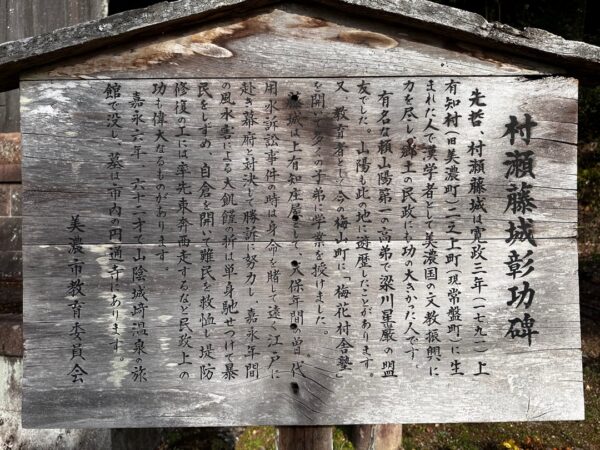 村瀬藤城彰功碑
先哲、村瀬藤城は寛政三年(一七九一)上
有知村(旧美濃町)二又上町(現常盤町)に生
まれた人で漢学者として美濃国の文教振興に
力を尽し、郷土の民政にも功の大きかった人です。
有名な頼山陽第一の高弟で梁川星巌の盟
友でした。山陽も此の地に遊歴したことがあります。
又、教育者として今の梅山町に「梅花村舎塾」
を開いて多くの子弟に学業を授けました。
藤城は上有知庄屋として、天保年間の曽代
用水訴訟事件の時は身命を賭て遠く江戸に
赴き幕府と対決して勝訴に努力し、嘉永年間
の風水害による大飢饉の折は単身馳せつけて暴
民をしずめ、自倉を開いて難民を救恤し堤防
修復の工には率先東奔西走するなど民政上の
功も偉大なるものがあります。
嘉永六年、六十二才で山陰城崎温泉の旅
館で没し、墓は市内の円通寺にあります。
美濃市教育委員会